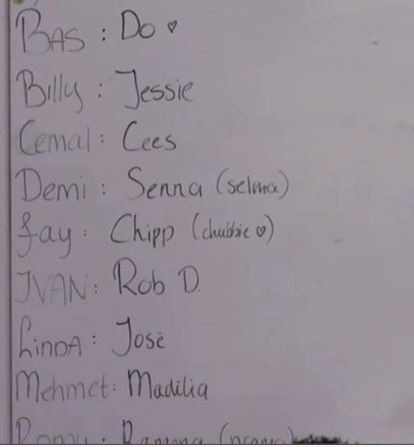 BAS : Do ♡
Billy : Jessie
Cemal : Cees
Demi : Senna (selma)
Fay : Chipp (chubbie ♡)
IVAN : Rob D.
LINDA : José
Mehmet : Madilia
Romy : Ramona